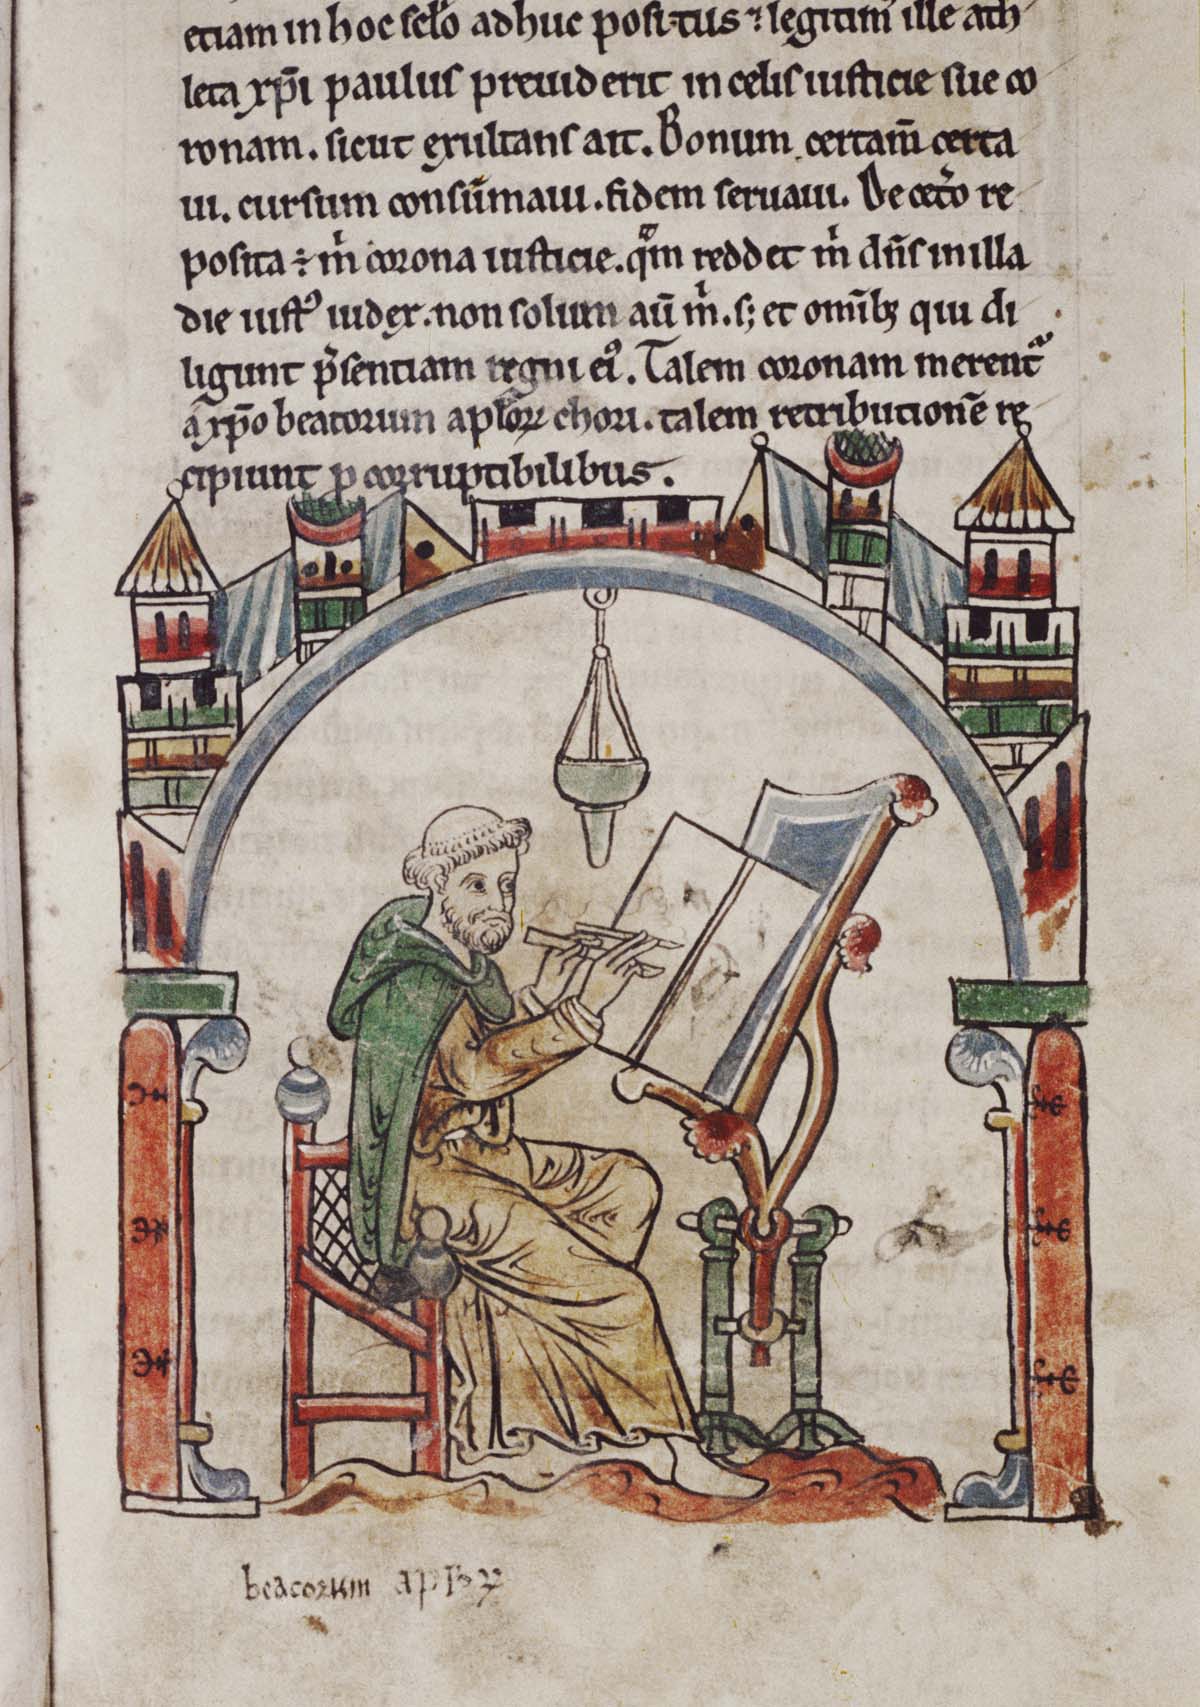 etiam in hoc sclo adhuc positus ⁊ legitim᾽ ille ath
leta xp̄i paulus preuiderit in celis iusticie sue co
ronam. sicut exultans ait. Bonum certam̄ certa
ui. cursum consūmaui. fidem seruaui. De cet̾o re
posita ÷ m̍ corona iusticie. qm̄ reddet m̍ dn̄s in illa
die iustꝰ iudex. non solum aū m̍. s; et omībꝫ qui di
ligunt p̄sentiam regni eiꝰ. Talem coronam merent᷑
a xp̄o beatorum aplōꝝ chori. talem retributionē re
cipiunt p corruptibilibus.
beatorum aplꝝ